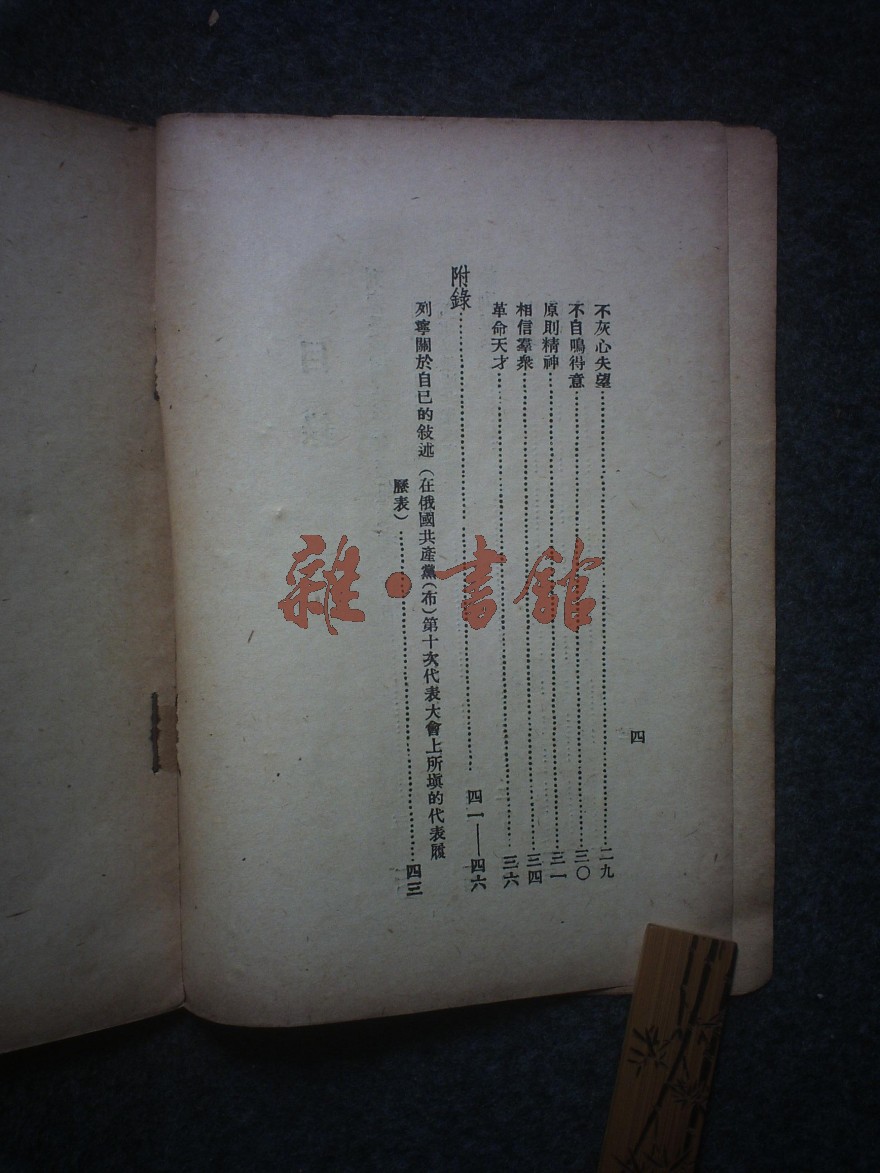 四
不灰心失望……二九
不自鳴得意……三〇
原則精神……三一
相信羣衆……三四
革命天才……三六
附錄……四一——四六
列寧關於自已的敍述（在俄國共產黨（布）第十次代表大會上所塡的代表履
歷表）……四三
雜·書館